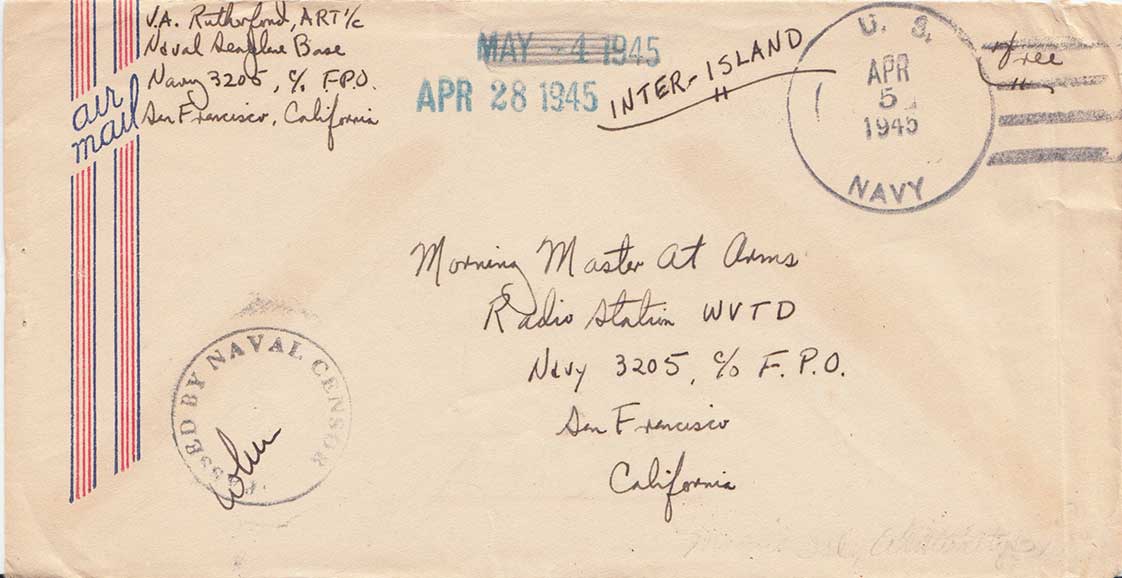 V.A. Rutherford, ART 1/c
Naval Seaplane Base
Navy 3205, c/o F.P.O.
San Francisco, California
air
mail
MAY - 4 1945
APR 28 1945
INTER-ISLAND
U. S.
APR
5
1945
NAVY
Free
Morning Master At Arms
Radio Station WVTD
Navy 3205, c/o F.P.O.
San Francisco
California
SSED BY NAVAL CENSOR